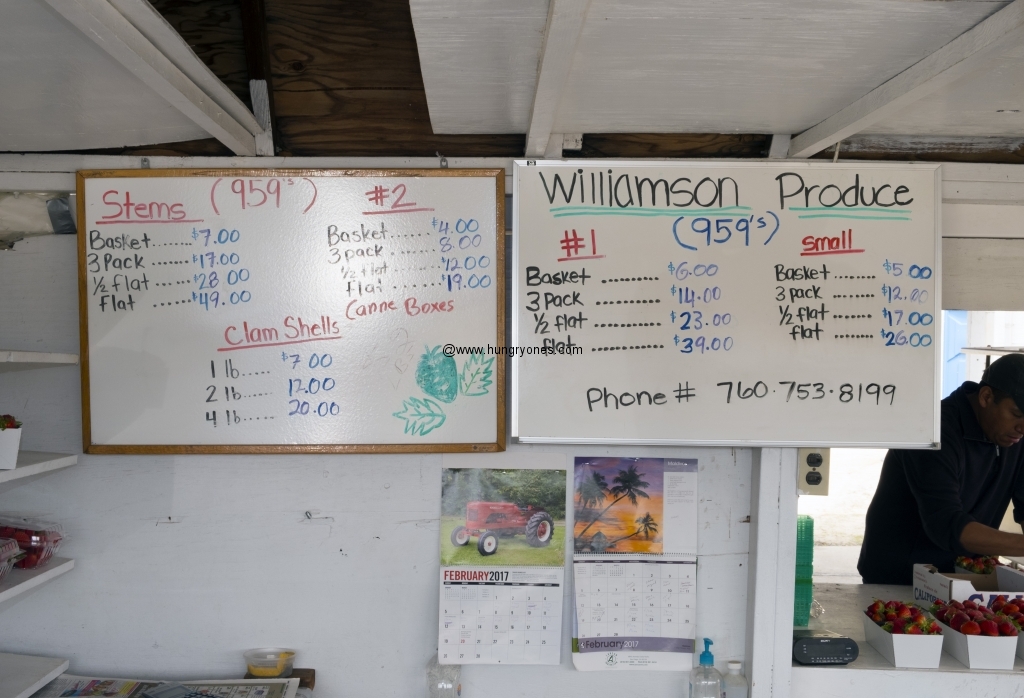 Stems (959's) #2
Basket........ $7.00
3 Pack ...... $17.00
½ flat ...... $28.00
flat ...... $49.00
Basket...... $4.00
3 pack...... 8.00
½ flat...... 12.00
flat...... $19.00
Canne Boxes
Clam Shells
1 lb..... $7.00
2 lb..... 12.00
4 lb...... 20.00
Williamson Produce
(959's)
#1
Basket ........... $6.00
3 pack ........... $14.00
½ flat ........... $23.00
flat ........... $39.00
small
Basket ....... $5.00
3 pack ....... $12.00
½ flat ....... $17.00
flat ....... $26.00
Phone # 760·753·8199
@www.hungryones.com
FEBRUARY2017
February2017
SONY